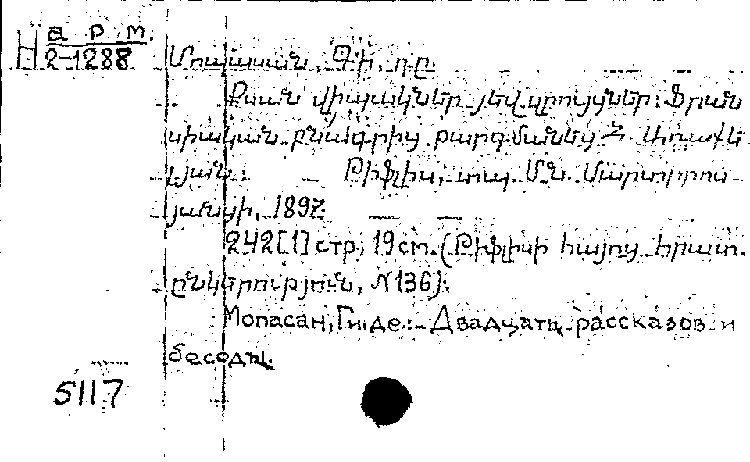 арм.
Н 2-1288
Մոպասան, Գի, դը
Քսան վիպակներ եվ զրույցներ: Ֆրան
սիական բնագրից թարգմանեց Հ. Առաքե
լյան: Թիֆլիս, տպ. Մն. Մարտիրոս
յանցի, 1897.
242[1] стр, 19 cm. (Թիֆլիսի հայոց հրատ.
ընկերություն, N136).
Мопасан, Ги, де. Двадцать рассказов и
беседы.
5117